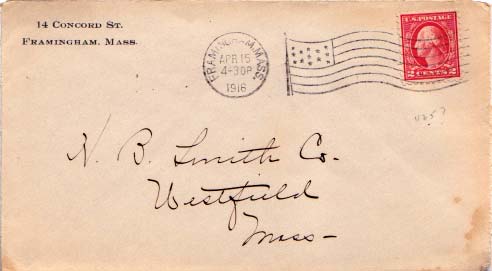 14 CONCORD ST.
FRAMINGHAM, MASS.
FRAMINGHAM, MASS.
APR 15
4-30P
1916
U.S. POSTAGE
2 CENTS 2
N. B. Smith Co.
Westfield
Mass—